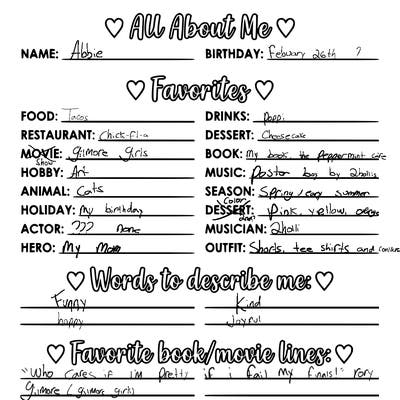 ♡ All About Me ♡
NAME: Abbie BIRTHDAY: Febuary 26th ?
♡ Favorites ♡
FOOD: Tacos DRINKS: poppi
RESTAURANT: Chick-fil-a DESSERT: Cheesecake
MOVIE: show gilmore girls BOOK: My book, the Peppermint cafe
HOBBY: Art MUSIC: Poster boy by 2hollis
ANIMAL: Cats SEASON: Spring/ early summer
HOLIDAY: My birthday DESSERT: Color Pink, yellow,
ACTOR: ??? none MUSICIAN: 2holli
HERO: My Mom OUTFIT: Shorts, tee shirts and
♡ Words to describe me: ♡
Funny Kind
happy Joyful
♡ Favorite book/movie lines: ♡
"Who cares if I'm pretty if i fail my finals!" rory
Gilmore (gilmore girls)